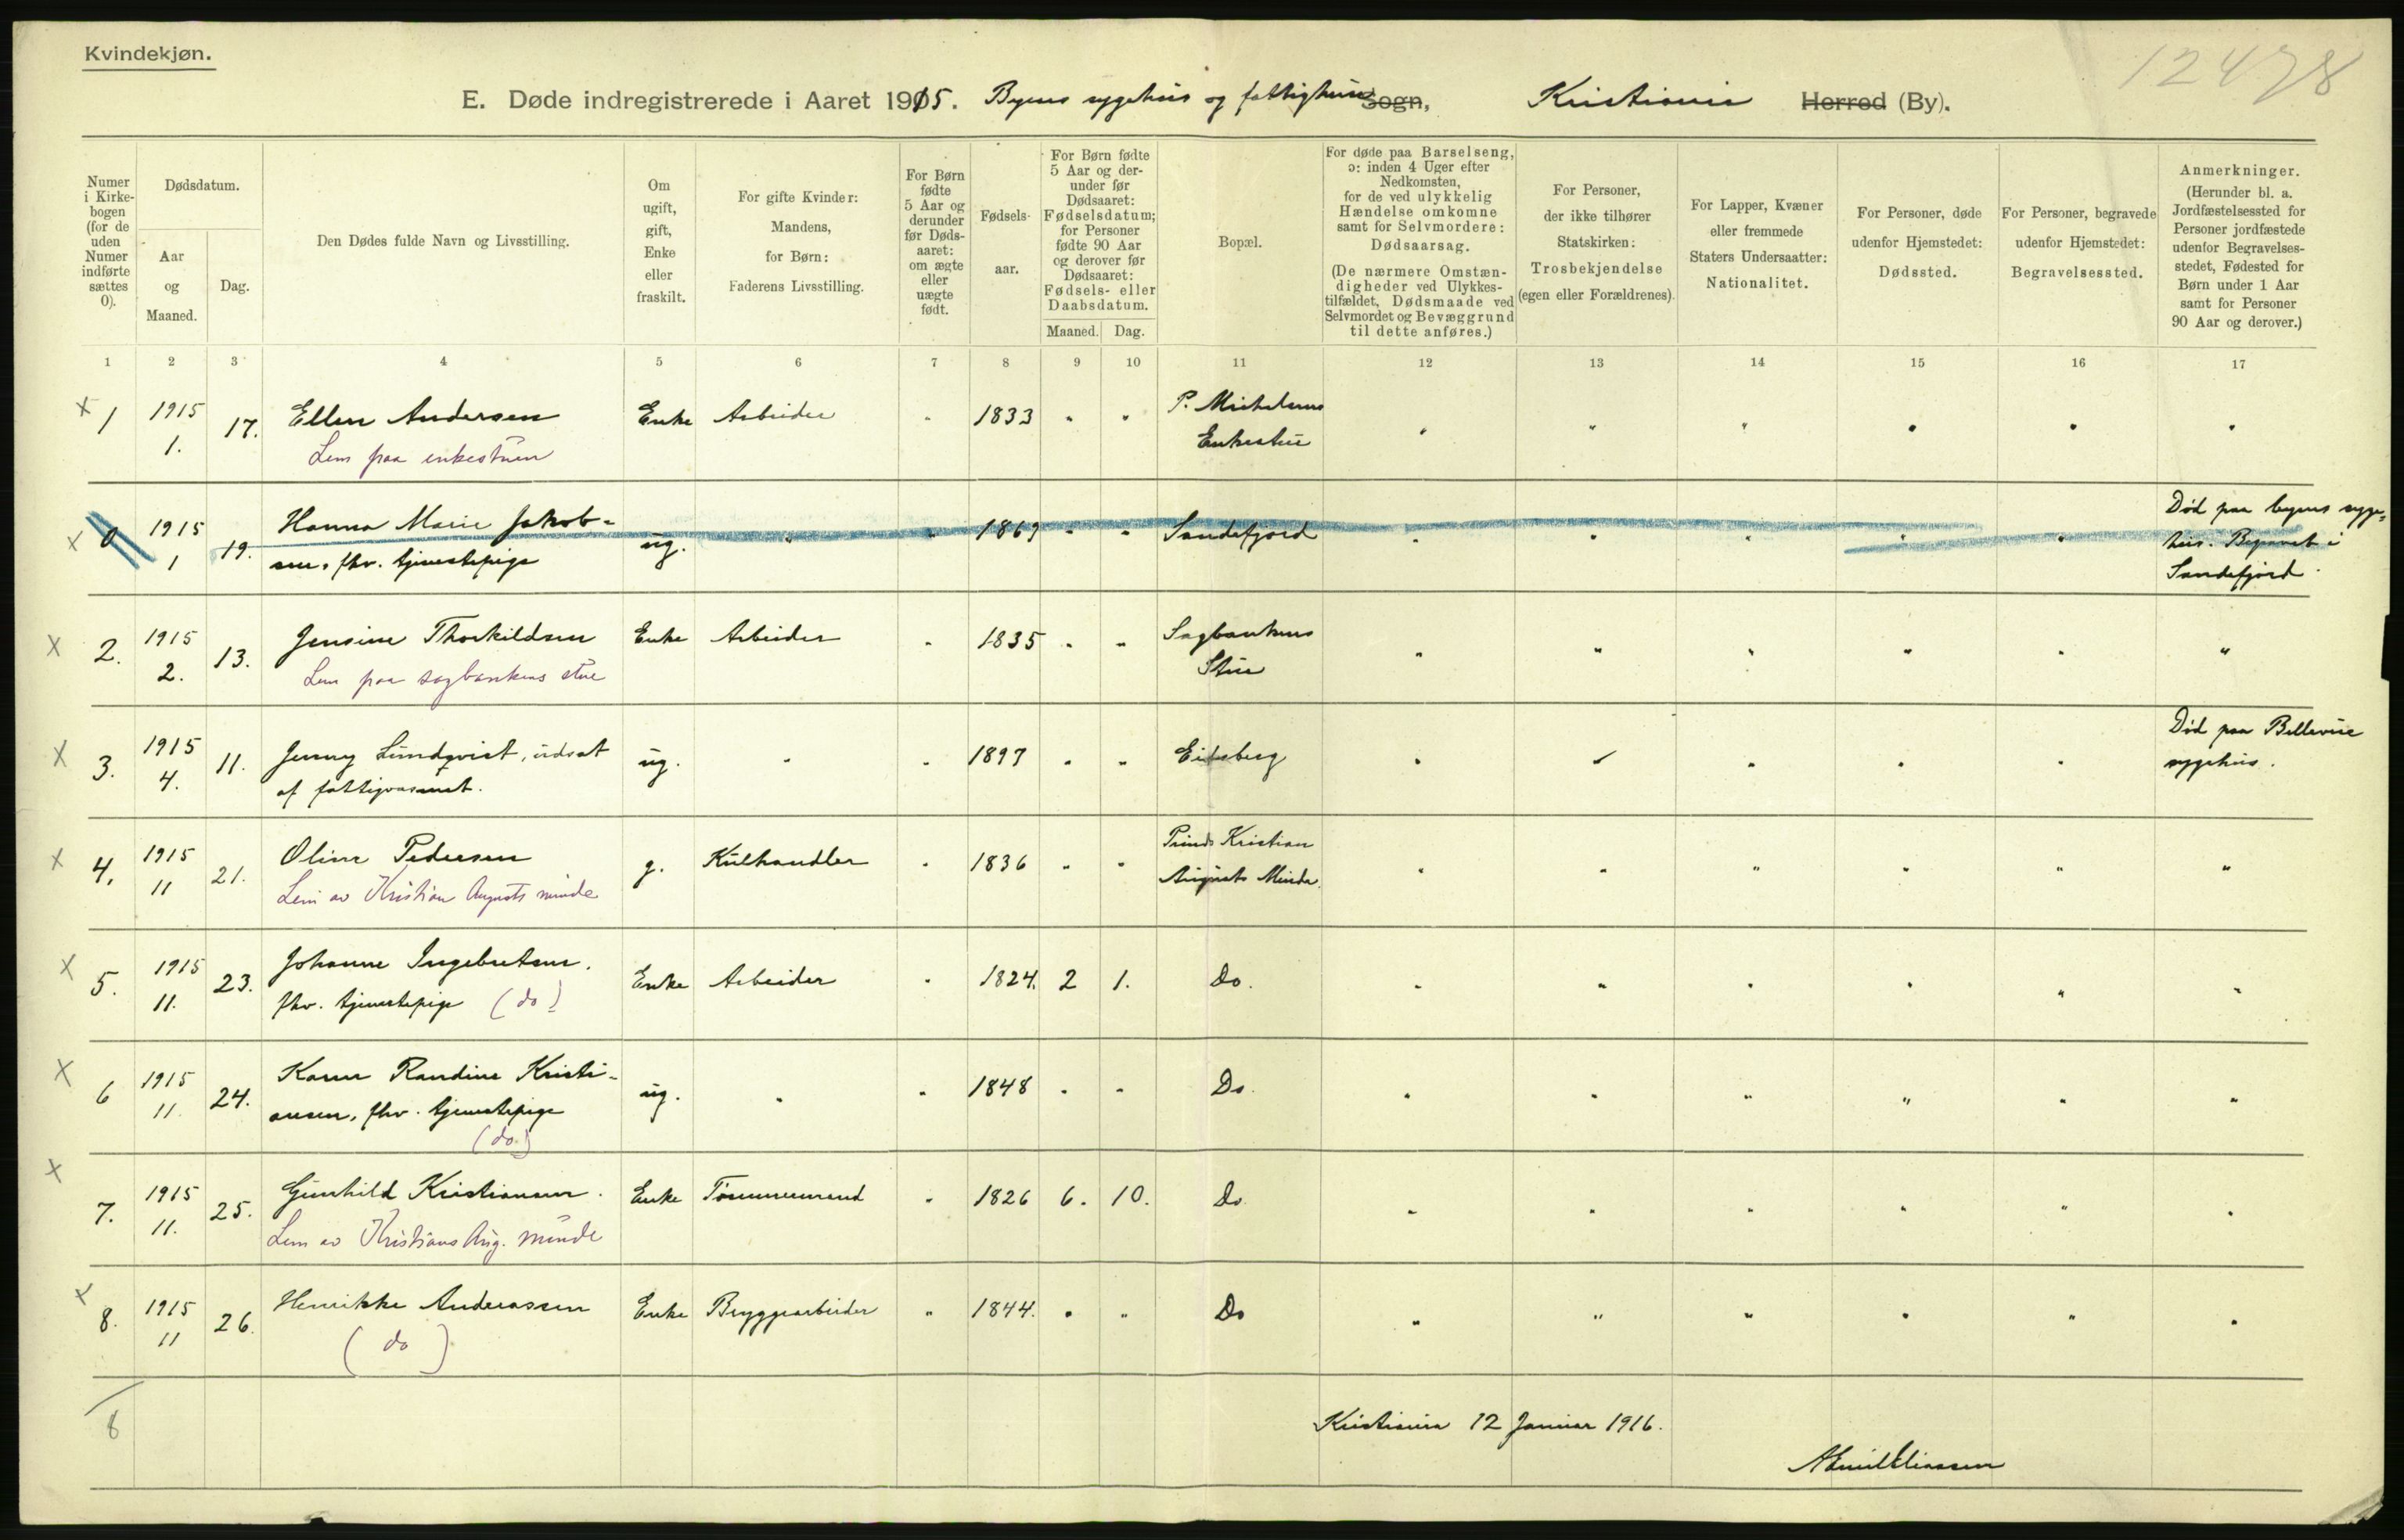 Kvindekjøn.
12478
E. Døde indregistrerede i Aaret 1915. Byens sygehus og fattighuse Sogn, Kristiania Herred (By).
Numer i Kirkebogen (for de uden Numer indførte sættes 0).
Dødsdatum.
Aar og Maaned.
Dag.
Den Dødes fulde Navn og Livsstilling.
Om ugift, gift, Enke eller fraskilt.
For gifte Kvinder: Mandens, for Børn: Faderens Livsstilling.
For Børn fødte 5 Aar og derunder før Dødsaaret: om ægte eller uægte født.
Fødselsaar.
For Børn fødte 5 Aar og derunder før Dødsaaret: Fødselsdatum; for Personer fødte 90 Aar og derover før Dødsaaret: Fødsels- eller Daabsdatum.
Maaned. Dag.
Bopæl.
For døde paa Barselseng, ɔ: inden 4 Uger efter Nedkomsten, for de ved ulykkelig Hændelse omkomne samt for Selvmordere: Dødsaarsag.
(De nærmere Omstændigheder ved Ulykkestilfældet, Dødsmaade ved Selvmordet og Bevæggrund til dette anføres.)
For Personer, der ikke tilhører Statskirken: Trosbekjendelse (egen eller Forældrenes).
For Lapper, Kvæner eller fremmede Staters Undersaatter: Nationalitet.
For Personer, døde udenfor Hjemstedet: Dødssted.
For Personer, begravede udenfor Hjemstedet: Begravelsessted.
Anmerkninger.
(Herunder bl. a. Jordfæstelsessted for Personer jordfæstede udenfor Begravelsesstedet, Fødested for Børn under 1 Aar samt for Personer 90 Aar og derover.)
1 2 3 4 5 6 7 8 9 10 11 12 13 14 15 16 17
x 1 1915 1. 17. Ellen Andersen Enke Arbeider " 1833 " " P. Michelsens Enkestue " " " " " "
Lem paa enkestuen
x 0 1915 1 19. Hanna Marie Jakob-
sen, fhv. tjenestepige ug. " " 1869 " " Sandefjord " " " " " Død paa byens syge-
hus. Begravet i
Sandefjord.
x 2. 1915 2. 13. Jensine Thorkildsen Enke Arbeider " 1835 " " Sagbankens Stue " " " " " "
Lem paa sagbankens stue
x 3. 1915 4. 11. Jenny Lundqvist, udsat
af fattigvæsenet. ug. " " 1897 " " Eidsberg " " " " " Død paa Bellevue
sygehus.
x 4. 1915 11 21. Oline Pedersen g. Kulhandler " 1836 " " Prinds Kristian
Augusts Minde. " " " " " "
Lem av Kristian Augusts minde
x 5. 1915 11. 23. Johanne Ingebretsen.
fhv. tjenestepige (do) Enke Arbeider " 1824. 2 1. Do. " " " " " "
x 6 1915 11. 24. Karen Randine Kristi-
ansen, fhv. tjenestepige ug. " " 1848 " " Do. " " " " " "
(do.)
x 7. 1915 11. 25. Gunhild Kristiansen. Enke Tømmermand " 1826 6. 10. Do " " " " " "
Lem av Kristians Aug. minde
x 8. 1915 11 26. Henrikke Andreassen Enke Bryggearbeider " 1844. " " Do " " " " " "
(do)
8
Kristiania 12 Januar 1916.